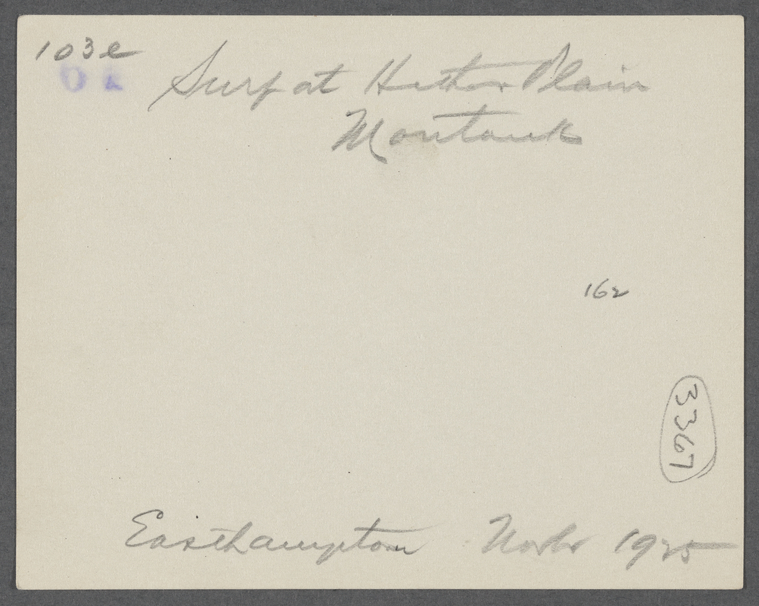 103e
Surf at Hither Plain
Montauk
162
3367
Easthampton Novbr 1925